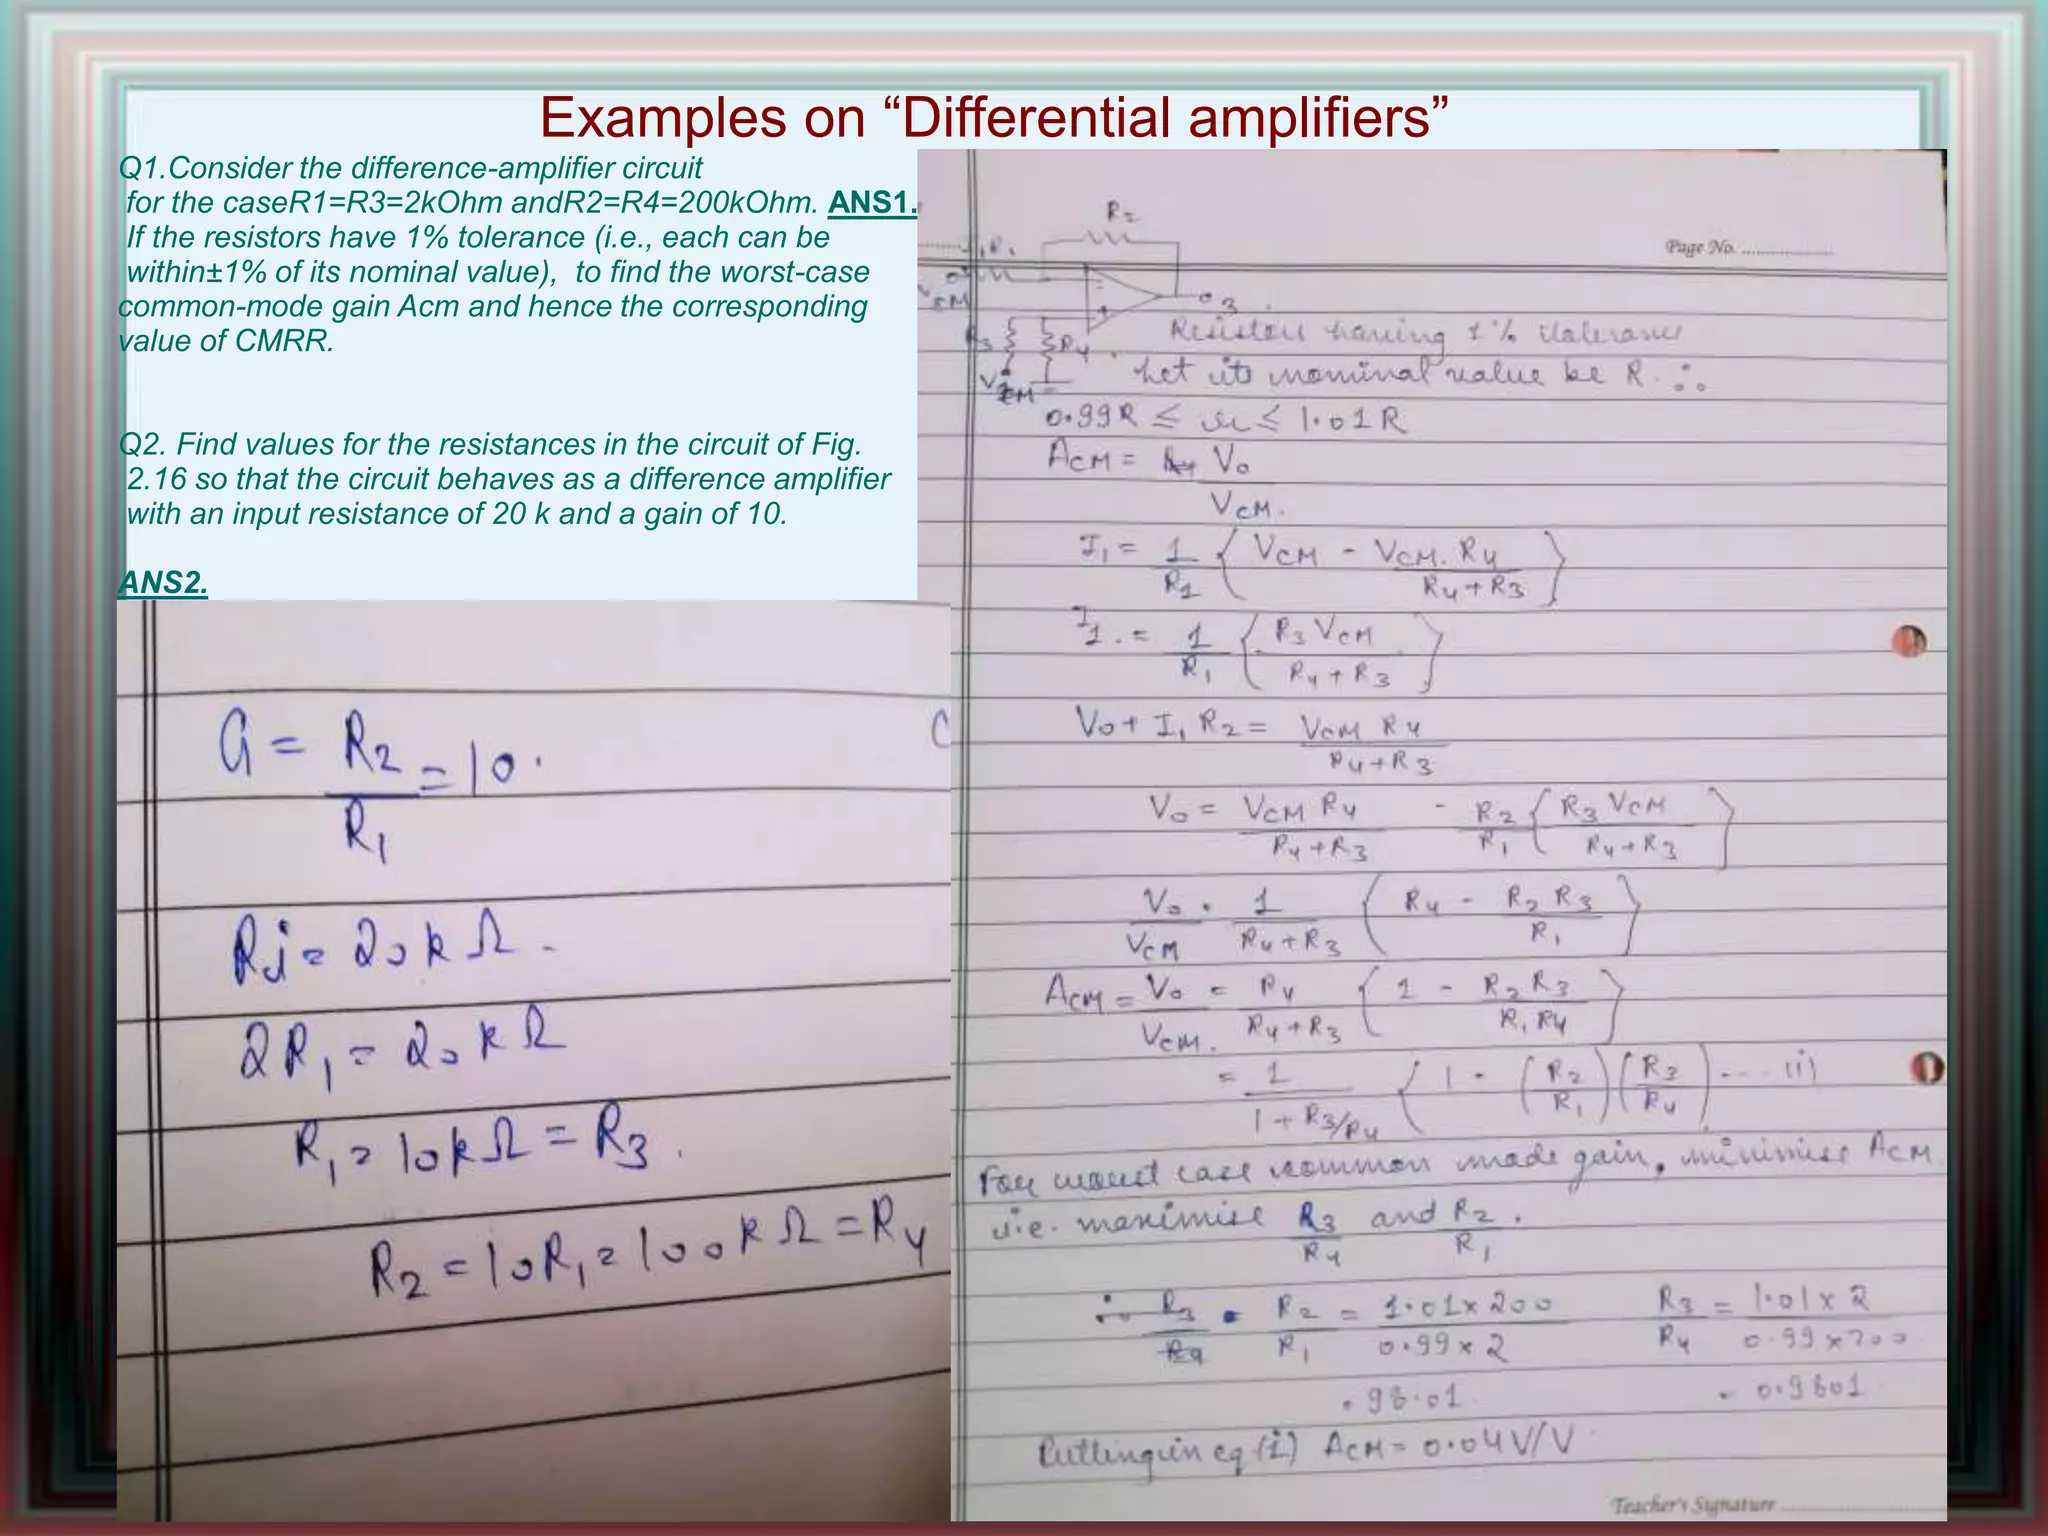 Examples on “Differential amplifiers”
Q1.Consider the difference-amplifier circuit
for the caseR1=R3=2kOhm andR2=R4=200kOhm. ANS1.
If the resistors have 1% tolerance (i.e., each can be
within±1% of its nominal value), to find the worst-case
common-mode gain Acm and hence the corresponding
value of CMRR.
Q2. Find values for the resistances in the circuit of Fig.
2.16 so that the circuit behaves as a difference amplifier
with an input resistance of 20 k and a gain of 10.
ANS2.
G = R2/R1 = 10.
Ri = 20kΩ.
2R1 = 20kΩ
R1 = 10kΩ = R3.
R2 = 10R1 = 100kΩ = R4
R2
Page No.
R1
VCM
3
R3 R4
VCM
Resistors having 1% tolerance
Let its nominal value be R. ∴
0.99R ≤ ≤ 1.01R
ACM = Vo/VCM.
I1 = 1/R1 { VCM - VCM. R4/R4+R3 }
I1. = 1/R1 { R3 VCM/R4+R3 }
Vo + I1 R2 = VCM R4/R4+R3
Vo = VCM R4/R4+R3 - R2/R1 { R3 VCM/R4+R3 }
Vo/VCM = 1/R4+R3 { R4 - R2 R3/R1 }
ACM = Vo/VCM. = R4/R4+R3 { 1 - R2 R3/R1 R4 }
= 1/1+R3/R4 { 1 - (R2/R1)(R3/R4) ... (i)
For worst case common mode gain, minimise ACM
i.e. maximise R3/R4 and R2/R1.
∴ R2/R1 = 1.01x200/0.99x2 R3/R4 = 1.01x2/0.99x200
= 98.01. = 0.9801.
Putting in eq (i) ACM = 0.04V/V
Teacher's Signature